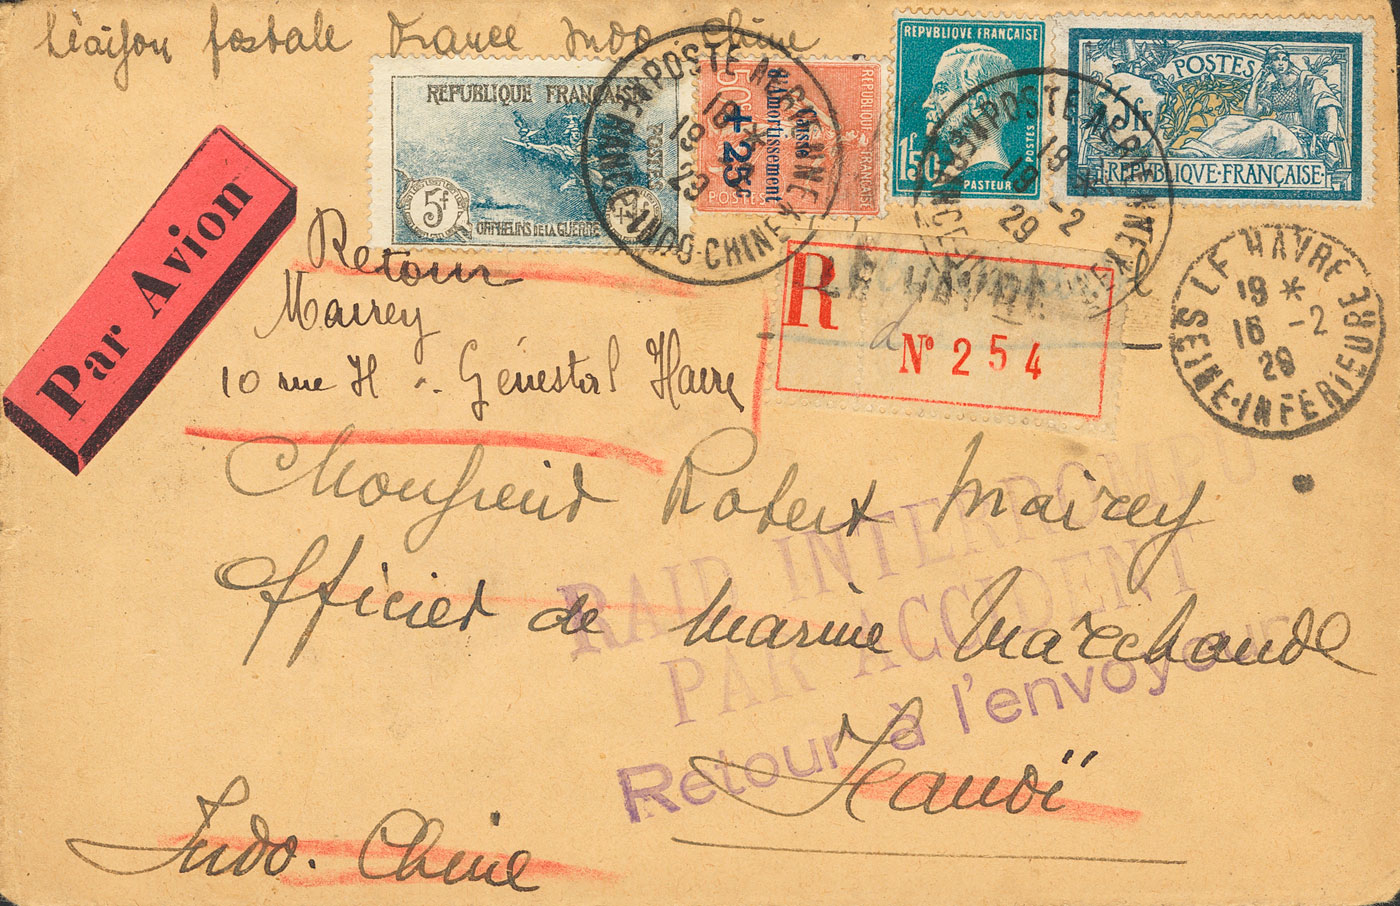 Liaison postale France Indo Chine
REPUBLIQUE FRANÇAISE
POSTES
5F
ORPHELINS DE LA GUERRE
50c
Caisse
d'Amortissement
+25c
REPUBLIQUE FRANÇAISE
POSTES
REPVBLIQVE FRANÇAISE
1F50
POSTES
PASTEUR
POSTES
5fr
REPVBLIQVE FRANÇAISE
POSTE AERIENNE
18
19-2
29
FRANCE INDO-CHINE
POSTE AERIENNE
19
19-2
29
FRANCE
Par Avion
LE HAVRE
19 *
16 -2
29
SEINE-INFERIEURE
R
LE HAVRE
N° 254
Retour
Mairey
10 rue H Génestal Havre
Monsieur Robert Mairey
Officier de Marine Marchande
RAID INTERROMPU
PAR ACCIDENT
Retour à l'envoyeur
Hanoï
Indo-Chine